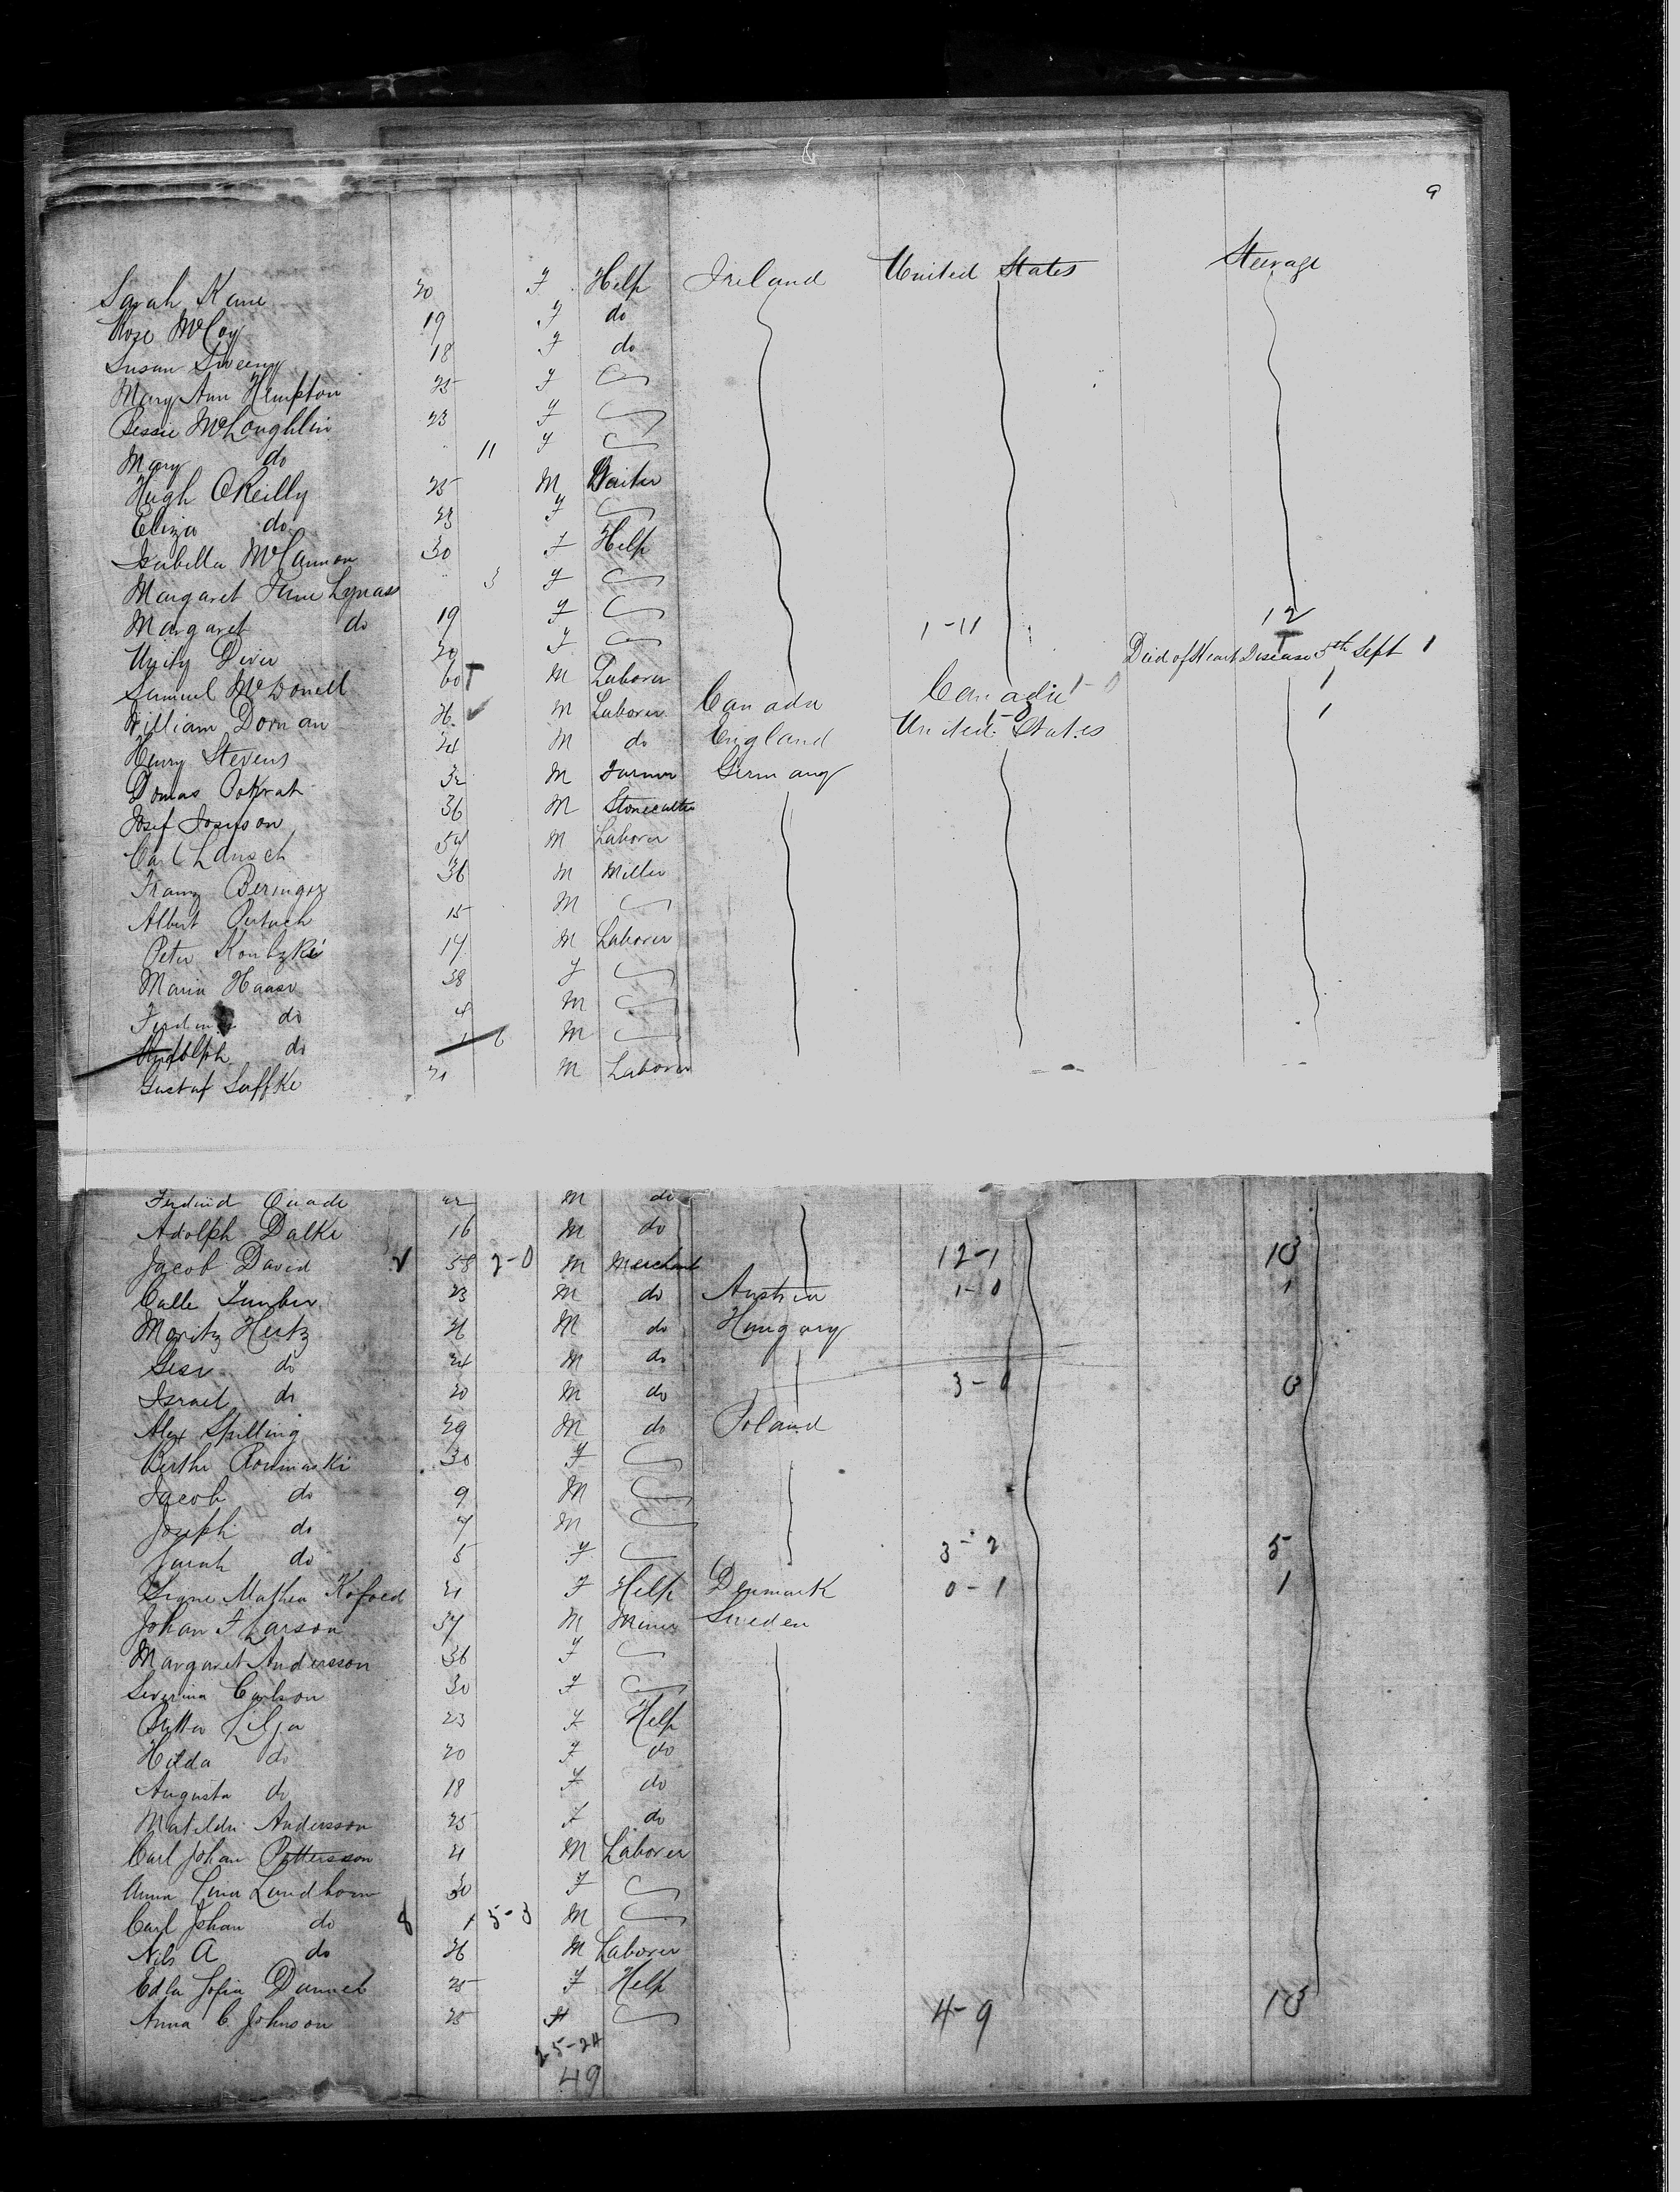 9
Sarah Kane 20 F Help Ireland United States Steerage
Rose McCoy 19 F do
Susan Sweeny 18 F do
Mary Ann Hempton 25 F
Bessie McLoughlin 23 F
Mary do 11 F
Hugh OReilly 25 M Waiter
Eliza do 23 F
Isabella McCannon 30 F Help
Margaret Jane Lynass 3 F
Margaret do 19 F 1-11 12
Unity Diver 20 F
Samuel McDonell 60 M Laborer Died of Heart Disease 5th Sept 1
William Dornan M Laborer Canada Canada 1-0 1
Henry Stevens 24 M do England United States 1-0 1
Domas 32 M Farmer Germany
Josef 36 M Stonecutter
Carl 54 M Laborer
Franz Beringer 36 M Miller
Albert 15 M
Peter 17 M Laborer
Maria Haase 38 F
do 4 M
Rudolph do 6 M
Gustaf Saffke 21 M Laborer
Quade M do
Adolph Dalke 16 M do
Jacob David 58 2-0 M Merchant 12-1 13
23 M do Austria 1-0 1
Moritz Hertz M do Hungary
do 24 M do
Israel do 20 M do 3-0 3
Alex Spilling 29 M do Poland
Berthe 30 F
Jacob do 9 M
Joseph do 7 M
Sarah do 5 F 3-2 5
Signe Mathea Kofoed 21 F Help Denmark 0-1 1
Johan F Larson 37 M Miner Sweden
Margaret Andersson 36 F
Severina Carlson 30 F
Britta Lilja 23 F Help
Hilda do 20 F do
Augusta do 18 F do
Matilda Andersson 25 F do
Carl Johan Pettersson 21 M Laborer
Anna Lina Lundborn 30 F
Carl Johan do 8 1 5-3 M
Nils A do M Laborer
Edla Sofia 25 F Help
Anna C. Johnson 25 F 4-9 13
25-24
49